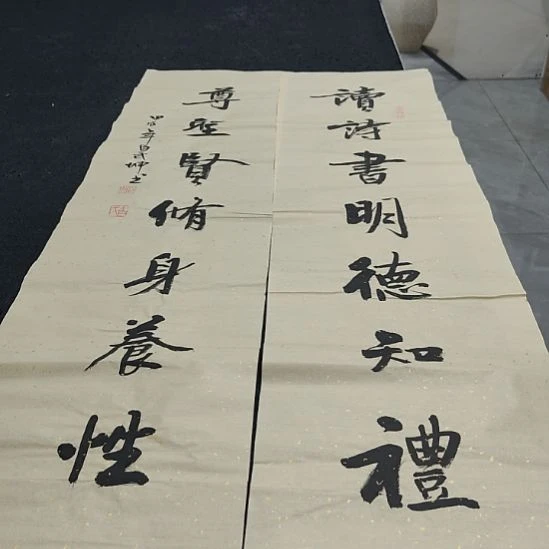 讀詩書明德知禮
尊聖賢脩身養性